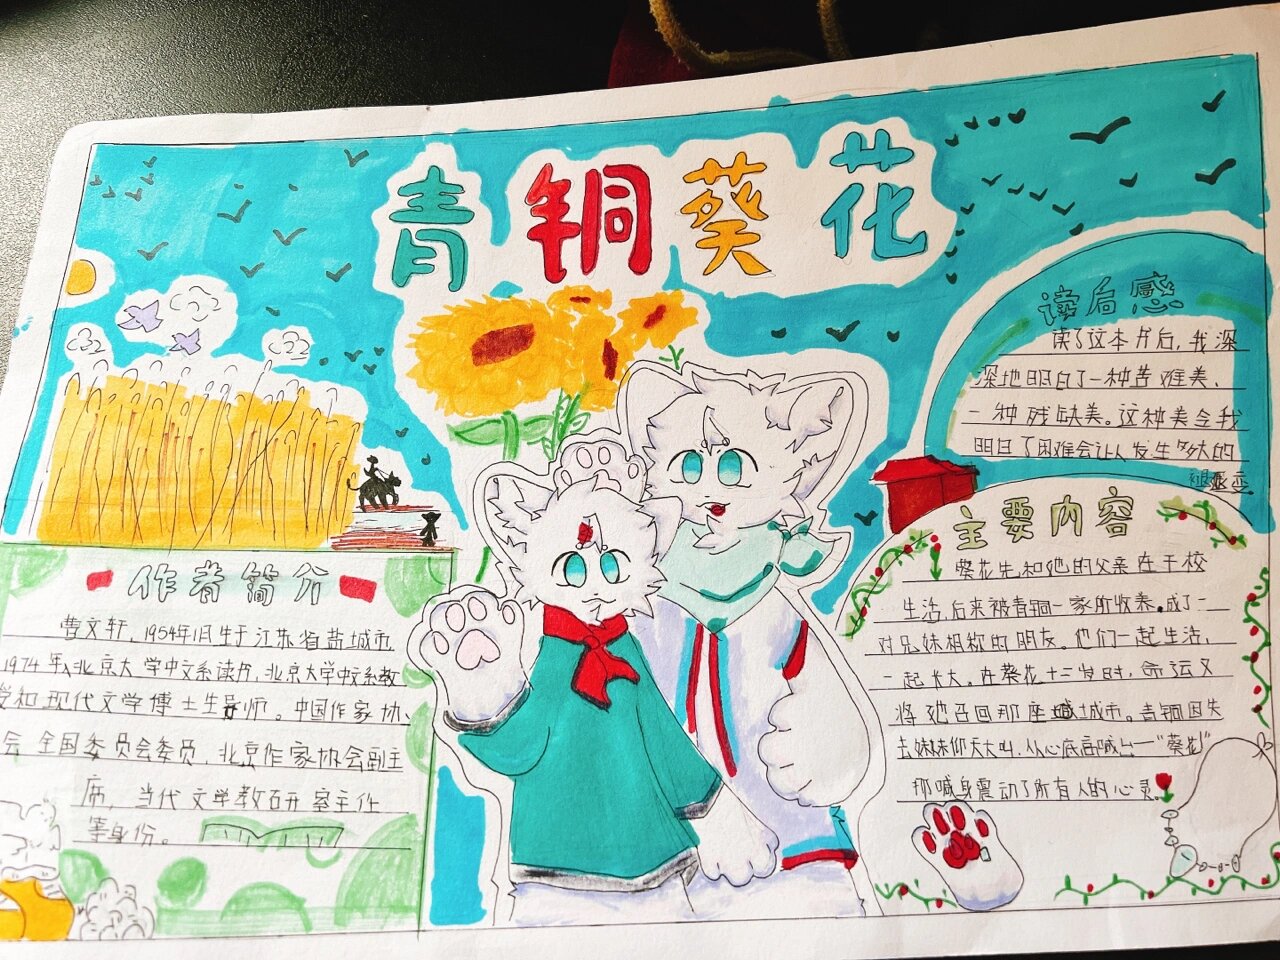 青铜葵花
读后感
读了这本书后,我深
深地明白了一种苦难美、
一种残缺美。这种美令我
明白了困难会让人发生多大的
主要内容
葵花先和他的父亲在干校
生活,后来被青铜一家所收养。成了一
对兄妹相称的朋友。他们一起生活,
一起长大。在葵花十二岁时,命运又
将她召回那座城市。青铜因失
去妹妹仰天大叫,从心底高喊出一“葵花”
那喊身震动了所有人的心灵。
作者简介
曹文轩,1954年1月生于江苏省盐城市,
1974年入北京大学中文系读书,北京大学中文系教
授和现代文学博士生导师。中国作家协
会全国委员会委员,北京作家协会副主
席,当代文学教研室主任
等身份。